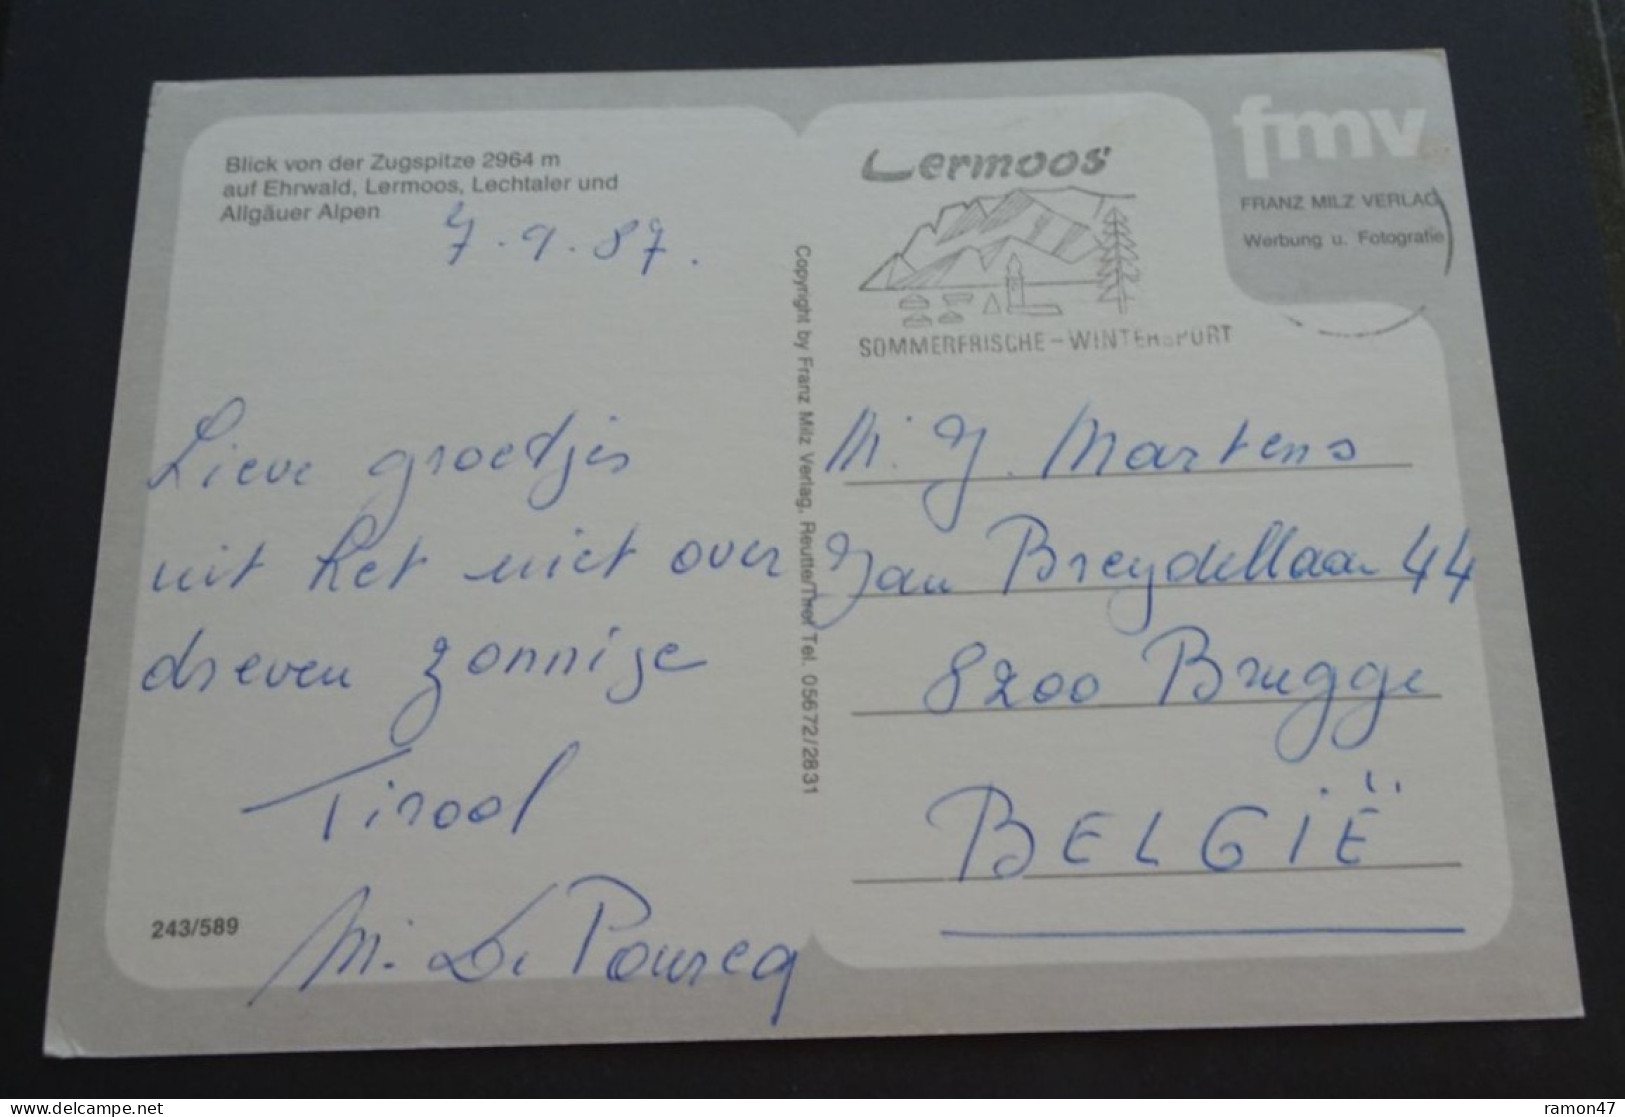 Blick von der Zugspitze 2964 m
auf Ehrwald, Lermoos, Lechtaler und
Allgäuer Alpen
7.9.87.
Lieve groetjes
uit het niet over
dreven zonnige
Tirool
M. De Pourcq
243/589
Copyright by Franz Milz Verlag, Reutte/Tirol Tel. 05672/2831
Lermoos
SOMMERFRISCHE - WINTERSPORT
fmv
FRANZ MILZ VERLAG
Werbung u. Fotografie
M. J. Martens
Jan Breydellaan 44
8200 Brugge
BELGIË
delcampe.net
ramon47